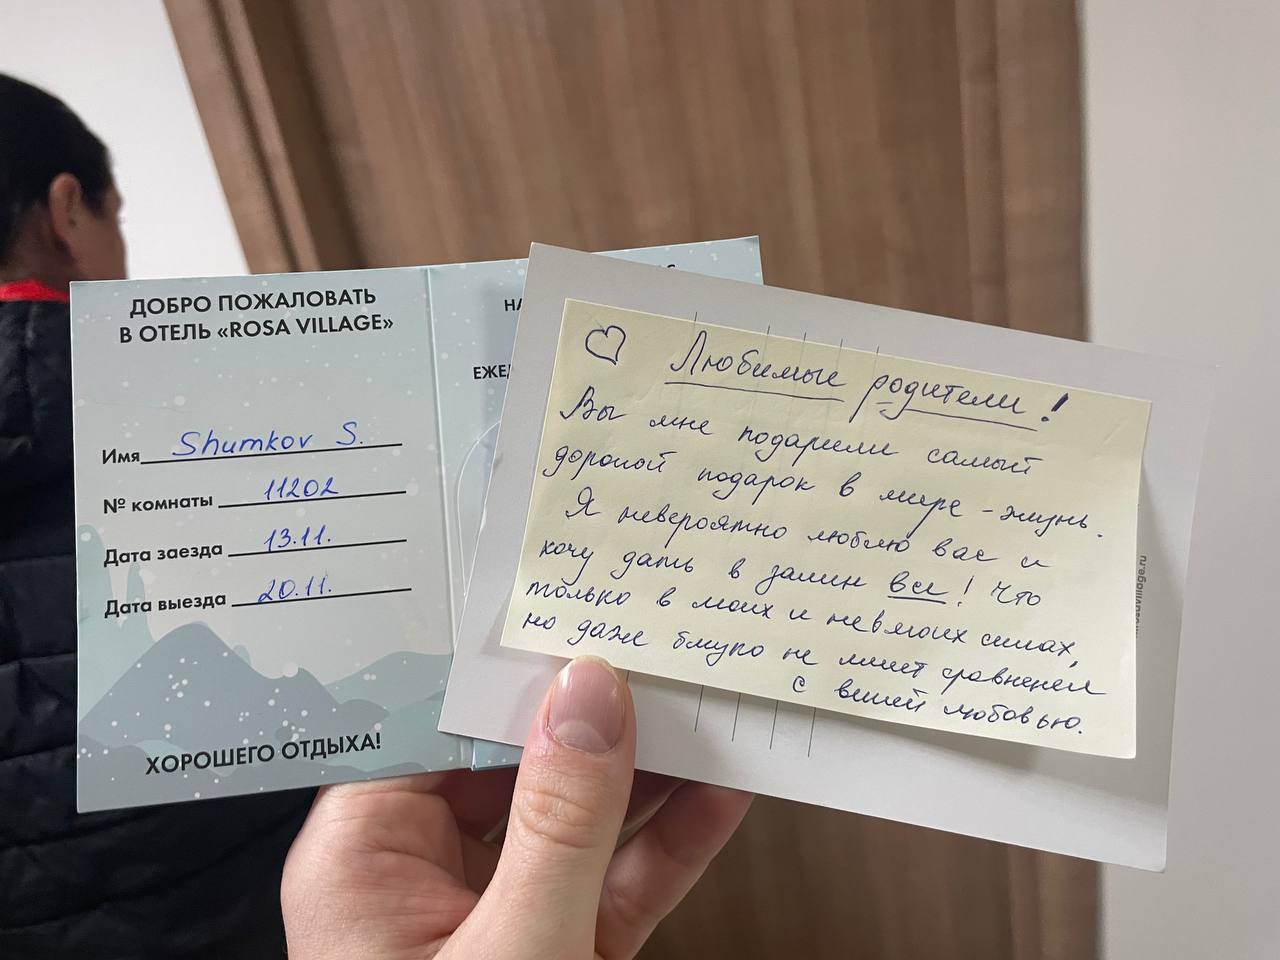 ДОБРО ПОЖАЛОВАТЬ
В ОТЕЛЬ «ROSA VILLAGE»
Имя Shumkov S.
№ комнаты 11202
Дата заезда 13.11.
Дата выезда 20.11.
ХОРОШЕГО ОТДЫХА!
НА
ЕЖЕД
Любимые родители!
Вы мне подарили самый
дорогой подарок в мире - жизнь.
Я невероятно люблю вас и
хочу дать в замен все! Что
только в моих и не в моих силах,
но даже близко не имеет сравнения
с вашей любовью.
village.ru